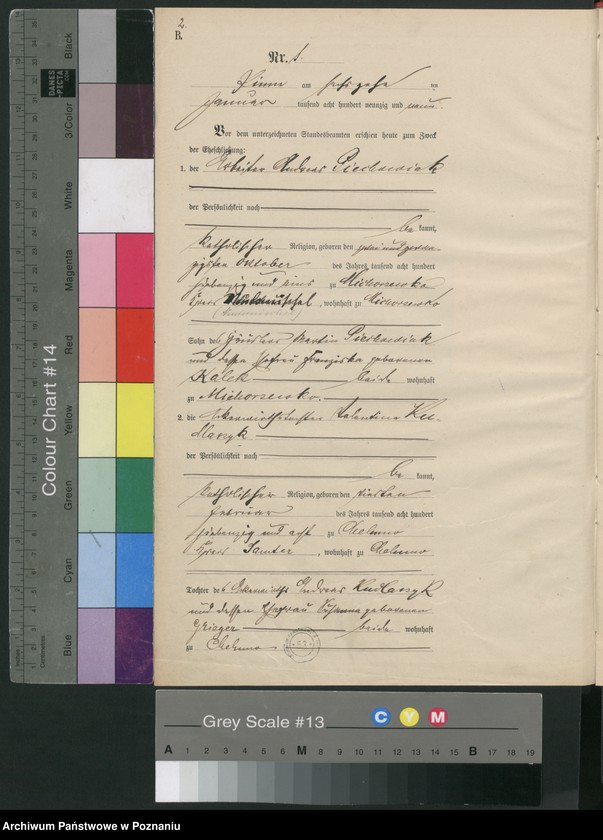 2.
B.
Nr. 1.
Pinne am sechszehn ten
Januar tausend acht hundert neunzig und neun.
Vor dem unterzeichneten Standesbeamten erschien heute zum Zweck
der Eheschließung:
1. der Arbeiter Andreas Piechowiak
der Persönlichkeit nach
be kannt,
katholischer Religion, geboren den zwei und zwan-
zigsten Oktober des Jahres tausend acht hundert
siebenzig und eins zu Michorzewko
Kreis , wohnhaft zu Michorzewko
Sohn des Häusler Martin Piechowiak
und dessen Ehefrau Franziska geborenen
Kalek beide wohnhaft
zu Michorzewko.
2. die Ackerwirthstochter Valentina Ku-
dlaszyk
der Persönlichkeit nach
be kannt,
katholischer Religion, geboren den vierten
Februar des Jahres tausend acht hundert
siebenzig und acht zu Chelmno
Kreis Samter, wohnhaft zu Chelmno
Tochter des Ackerwirths Andreas Kudlaszyk
und dessen Ehefrau Susanna geborenen
Grieger beide wohnhaft
zu Chelmno
Colour Chart #14
Black
3/Color
White
Magenta
Red
Yellow
Green
Cyan
Blue
DANES
-PICTA
.COM
Centimetres
Grey Scale #13
C Y M
A 1 2 3 4 5 6 M 8 9 10 11 12 13 14 15 B 17 18 19
Archiwum Państwowe w Poznaniu